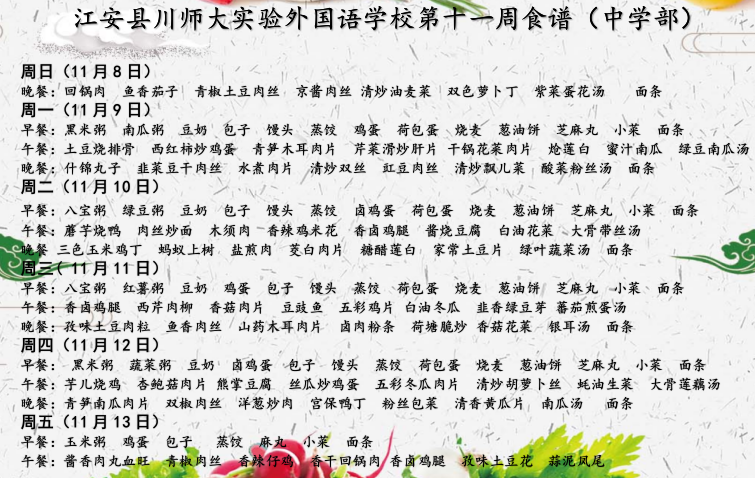 江安县川师大实验外国语学校第十一周食谱（中学部）
周日（11月8日）
晚餐：回锅肉 鱼香茄子 青椒土豆肉丝 京酱肉丝 清炒油麦菜 双色萝卜丁 紫菜蛋花汤 面条
周一（11月9日）
早餐：黑米粥 南瓜粥 豆奶 包子 馒头 蒸饺 鸡蛋 荷包蛋 烧麦 葱油饼 芝麻丸 小菜 面条
午餐：土豆烧排骨 西红柿炒鸡蛋 青笋木耳肉片 芹菜滑炒肝片 干锅花菜肉片 炝莲白 蜜汁南瓜 绿豆南瓜汤
晚餐：什锦丸子 韭菜豆干肉丝 水煮肉片 清炒双丝 豇豆肉丝 清炒飘儿菜 酸菜粉丝汤 面条
周二（11月10日）
早餐：八宝粥 绿豆粥 豆奶 包子 馒头 蒸饺 卤鸡蛋 荷包蛋 烧麦 葱油饼 芝麻丸 小菜 面条
午餐：蘑芋烧鸭 肉丝炒面 木须肉 香辣鸡米花 香卤鸡腿 酱烧豆腐 白油花菜 大骨带丝汤
晚餐 三色玉米鸡丁 蚂蚁上树 盐煎肉 茭白肉片 糖醋莲白 家常土豆片 绿叶蔬菜汤 面条
周三（11月11日）
早餐：八宝粥 红薯粥 豆奶 鸡蛋 包子 馒头 蒸饺 荷包蛋 烧麦 葱油饼 芝麻丸 小菜 面条
午餐：香卤鸡腿 西芹肉柳 香菇肉片 豆豉鱼 五彩鸡片 白油冬瓜 韭香绿豆芽 蕃茄煎蛋汤
晚餐：孜味土豆肉粒 鱼香肉丝 山药木耳肉片 卤肉粉条 荷塘脆炒 香菇花菜 银耳汤 面条
周四（11月12日）
早餐： 黑米粥 蔬菜粥 豆奶 卤鸡蛋 包子 馒头 蒸饺 荷包蛋 烧麦 葱油饼 芝麻丸 小菜 面条
午餐：芋儿烧鸡 杏鲍菇肉片 熊掌豆腐 丝瓜炒鸡蛋 五彩冬瓜肉片 清炒胡萝卜丝 蚝油生菜 大骨莲藕汤
晚餐：青笋南瓜肉片 双椒肉丝 洋葱炒肉 宫保鸭丁 粉丝包菜 清香黄瓜片 南瓜汤 面条
周五（11月13日）
早餐：玉米粥 鸡蛋 包子 蒸饺 麻丸 小菜 面条
午餐：酱香肉丸血旺 青椒肉丝 香辣仔鸡 香干回锅肉 香卤鸡腿 孜味土豆花 蒜泥凤尾